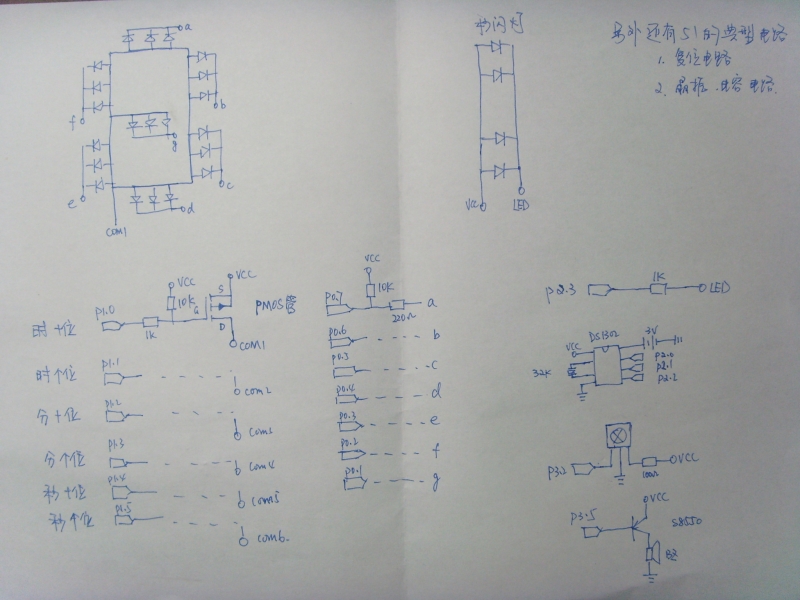 a
f
b
g
e
c
d
com1
秒闪灯
Vcc
LED
另外还有51的典型电路
1. 复位电路
2. 晶振、电容电路
时十位
P1.0
1K
VCC
10K
G
S
D
VCC
PMOS管
COM1
时个位
P1.1
com2
分十位
P1.2
分个位
P1.3
com4
秒十位
P1.4
com5
秒个位
P1.5
com6
VCC
P0.7
10K
220Ω
a
P0.6
b
P0.5
c
P0.4
d
P0.3
e
P0.2
f
P0.1
g
P2.3
1K
LED
DS1302
3V
VCC
32K
P2.0
P2.1
P2.2
VCC
P3.5
VCC
S8550